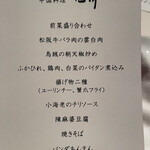 中国料理
前菜盛り合わせ
松阪牛バラ肉の雲白肉
烏賊の朝天椒炒め
ふかひれ、鶏肉、白菜のパイタン煮込み
揚げ物二種
(ユーリンチー、蟹爪フライ)
小海老のチリソース
陳麻婆豆腐
焼きそば